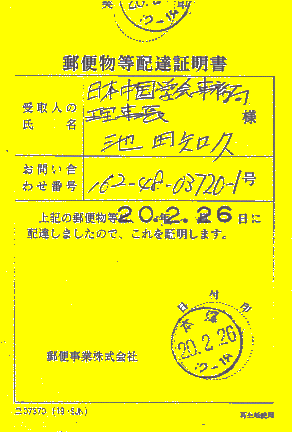 郵便物等配達証明書
受取人の
氏名
日本中国学会事務局
理事長
池田知久
様
お問い合
わせ番号
162-48-03720-1号
上記の郵便物等20.年2.月26日に
配達しましたので、これを証明します。
日付印
本郷
20.2.26
郵便事業株式会社
07370 (19・SJN)
再生紙使用